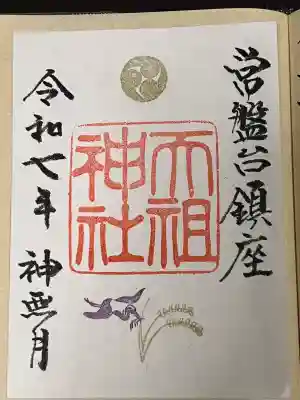 常盤台鎮座
天祖
神社
令和七年 神無月